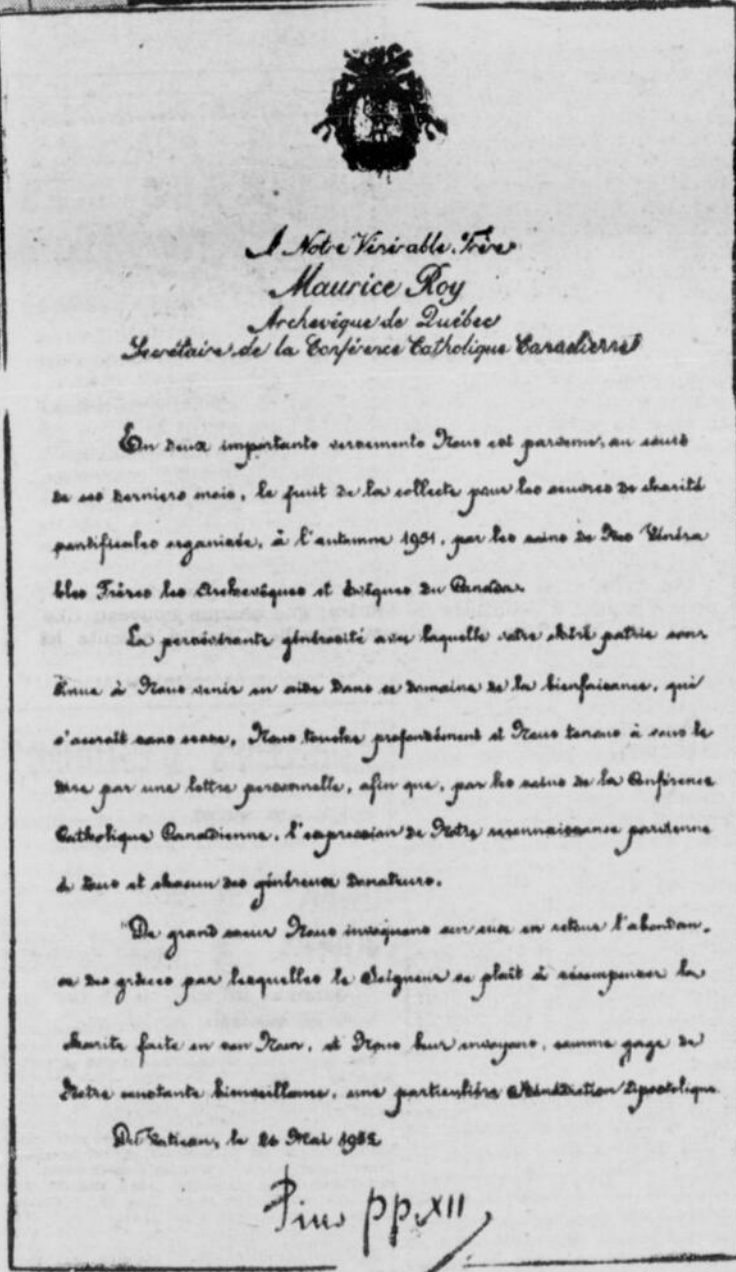 A Notre Vénérable Frère
Maurice Roy
Archevêque de Québec
Secrétaire de la Conférence Catholique Canadienne
En deux importants versements Nous est parvenu, au cours
de ces derniers mois, le fruit de la collecte pour les œuvres de charité
pontificales organisée, à l'automne 1951, par les soins de Nos Vénéra
bles Frères les Archevêques et Evêques du Canada.
La persévérante générosité avec laquelle votre chère patrie con
tinue à Nous venir en aide dans ce domaine de la bienfaisance, qui
s'accroît sans cesse, Nous touche profondément et Nous tenons à vous le
dire par une lettre personnelle, afin que, par les soins de la Conférence
Catholique Canadienne, l'expression de Notre reconnaissance parvienne
à tous et chacun des généreux donateurs.
De grand cœur Nous invoquons sur eux en retour l'abondan-
ce des grâces par lesquelles le Seigneur se plaît à récompenser la
charité faite en son Nom, et Nous leur envoyons, comme gage de
Notre constante bienveillance, une particulière Bénédiction Apostolique
Du Vatican, le 26 Mai 1952
Pius pp. XII